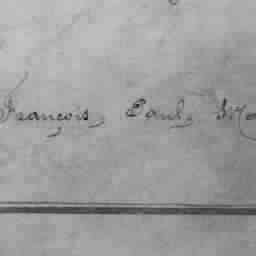 François, Paul, Ma